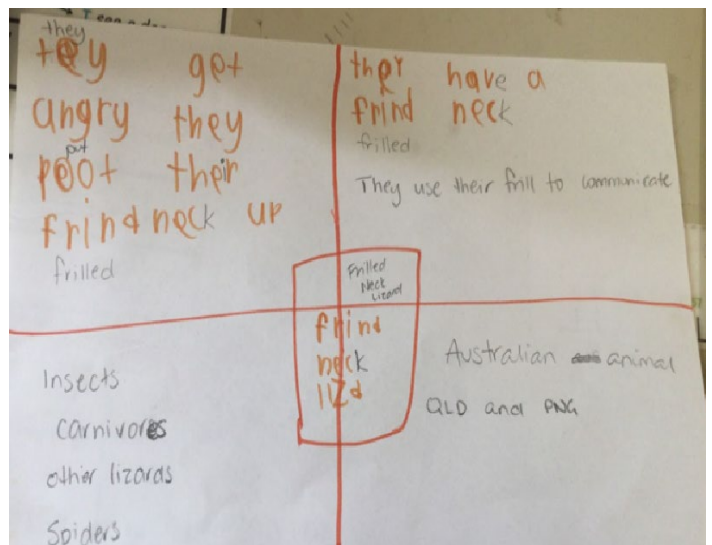 they
tey get
angry they
put
poot their
frind neck up
frilled
they have a
frind neck
frilled
They use their frill to communicate
Frilled
Neck
Lizard
frind
neck
lizd
Insects
carnivores
other lizards
Spiders
Australian animal
QLD and PNG